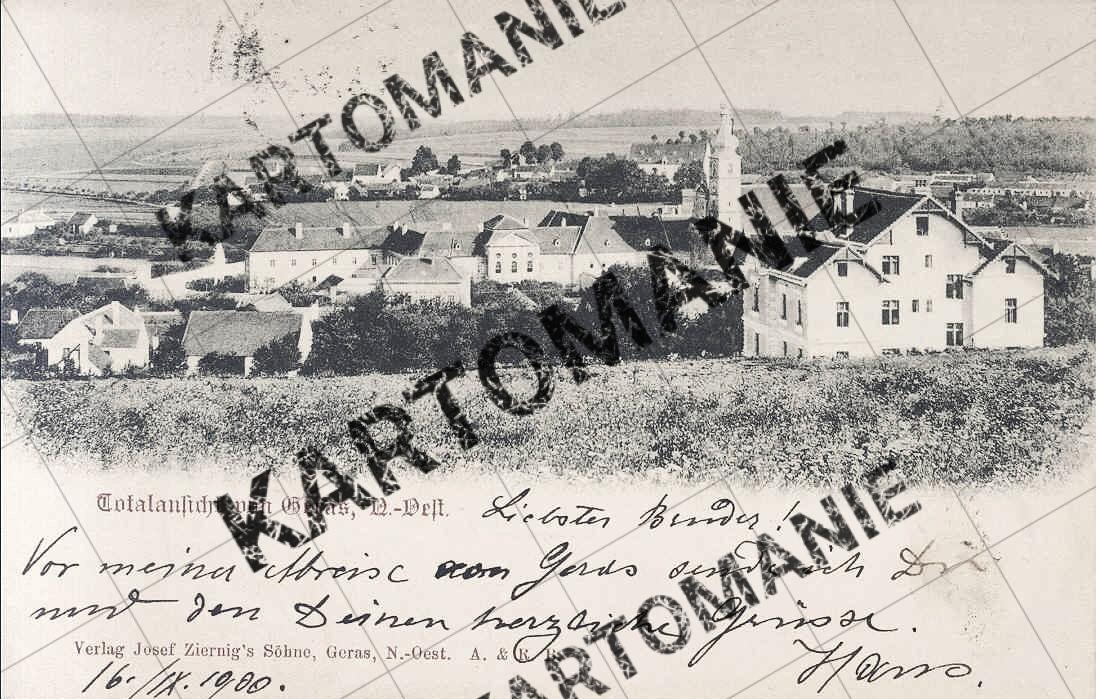 KARTOMANIE
KARTOMANIE
KARTOMANIE
Totalansicht von Geras, N.-Oest.
Liebster Bruder!
Vor meiner Abreise von Geras sende ich Dir
und den Deinen herzliche Grüsse.
Verlag Josef Ziernig's Söhne, Geras, N.-Oest. A. & K. B.
Hans.
16./IX. 1900.